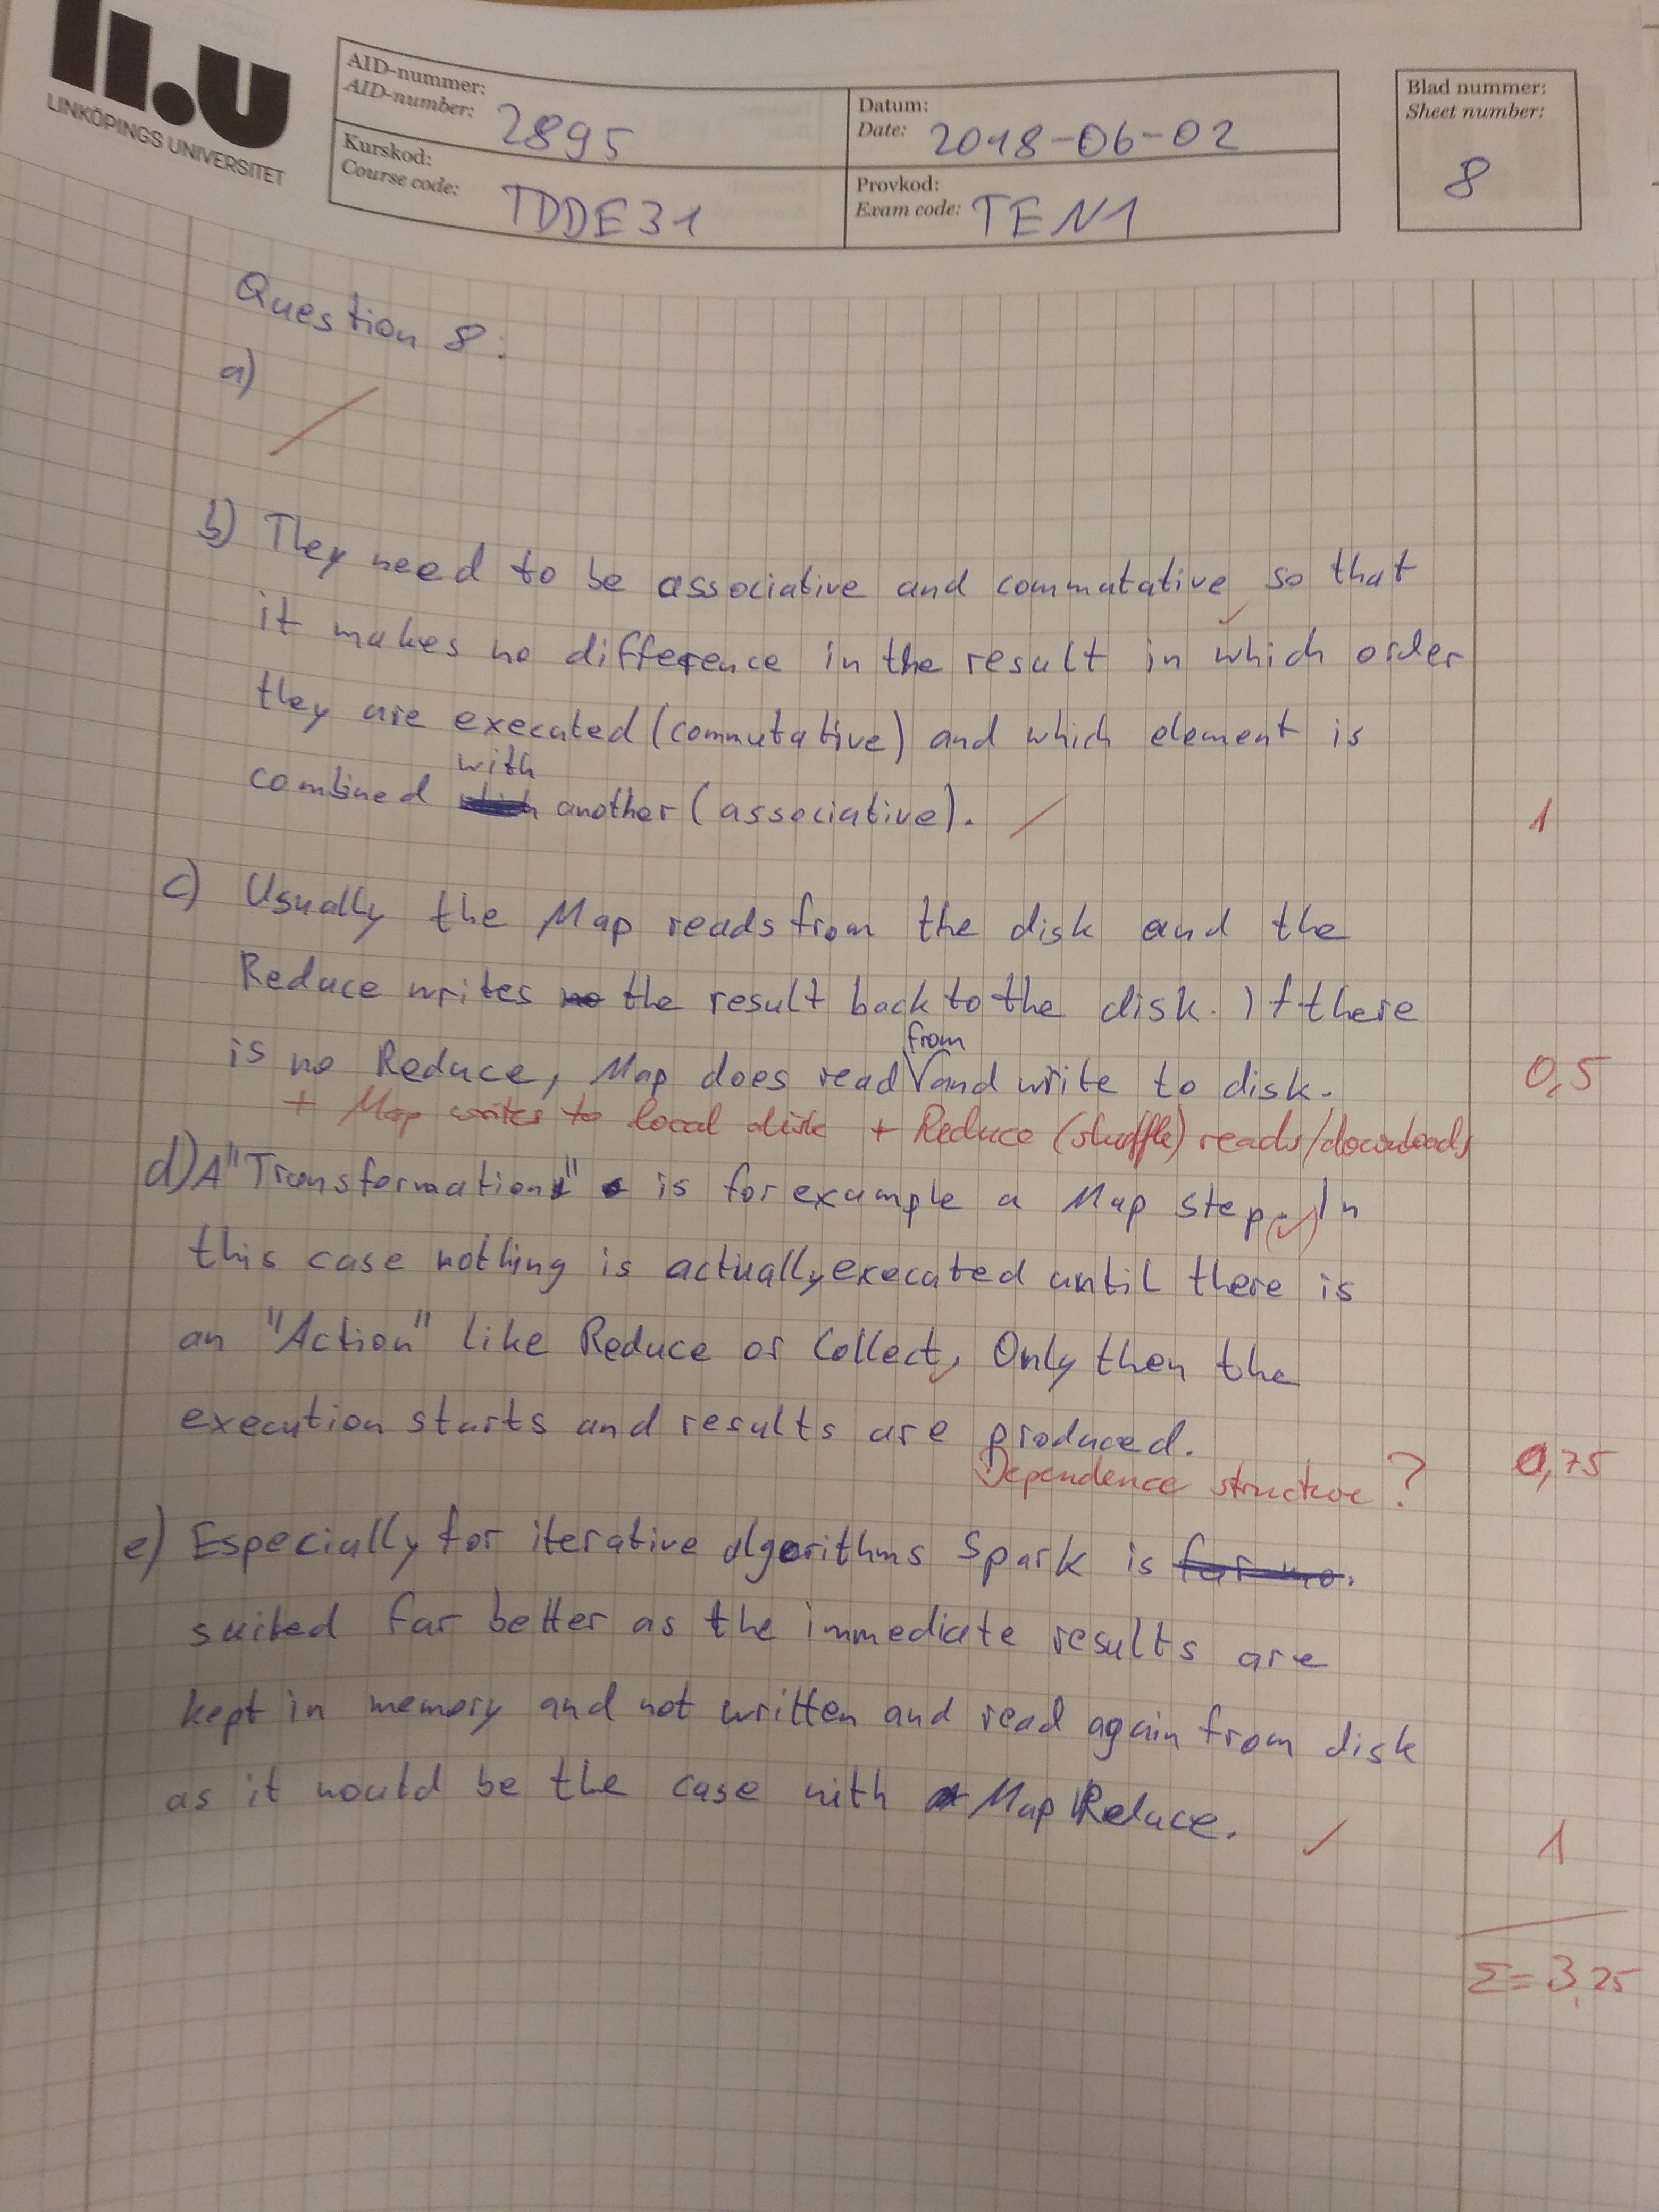 li.u
LINKÖPINGS UNIVERSITET
AID-nummer:
AID-number: 2895
Datum:
Date: 2018-06-02
Blad nummer:
Sheet number:
8
Kurskod:
Course code: TDDE31
Provkod:
Exam code: TEN1
Question 8:
a)
b) They need to be associative and commutative so that
it makes no difference in the result in which order
they are executed (commutative) and which element is
with
combined another (associative).
1
c) Usually the Map reads from the disk and the
Reduce writes the result back to the disk. If there
from
is no Reduce, Map does read and write to disk.
0,5
+ Map writes to local disk + Reduce (shuffle) reads/downloads
d) A "Transformation" is for example a Map step. In
this case nothing is actually executed until there is
an "Action" like Reduce or Collect. Only then the
execution starts and results are produced.
Dependence structure ?
0,75
e) Especially for iterative algorithms Spark is
suited far better as the immediate results are
kept in memory and not written and read again from disk
as it would be the case with Map Reduce.
1
Σ = 3,25